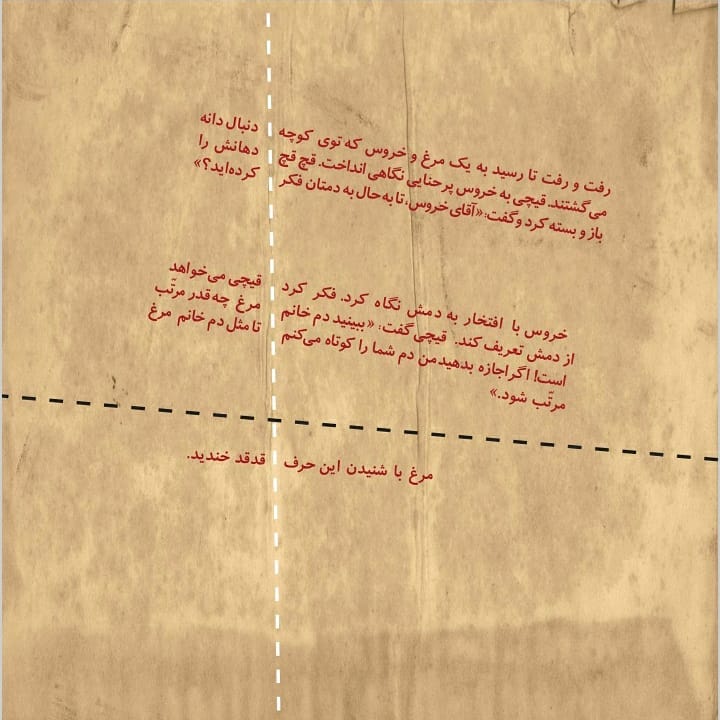 رفت و رفت تا رسید به یک مرغ و خروس که توی کوچه دنبال دانه
می‌گشتند. قیچی به خروس پرحنایی نگاهی انداخت. قچ قچ دهانش را
باز و بسته کرد و گفت: «آقای خروس، تا به حال به دمتان فکر کرده‌اید؟»
خروس با افتخار به دمش نگاه کرد. فکر کرد قیچی می‌خواهد
از دمش تعریف کند. قیچی گفت: «ببینید دم خانم مرغ چه قدر مرتّب
است! اگر اجازه بدهید من دم شما را کوتاه می‌کنم تا مثل دم خانم مرغ
مرتّب شود.»
مرغ با شنیدن این حرف قدقد خندید.